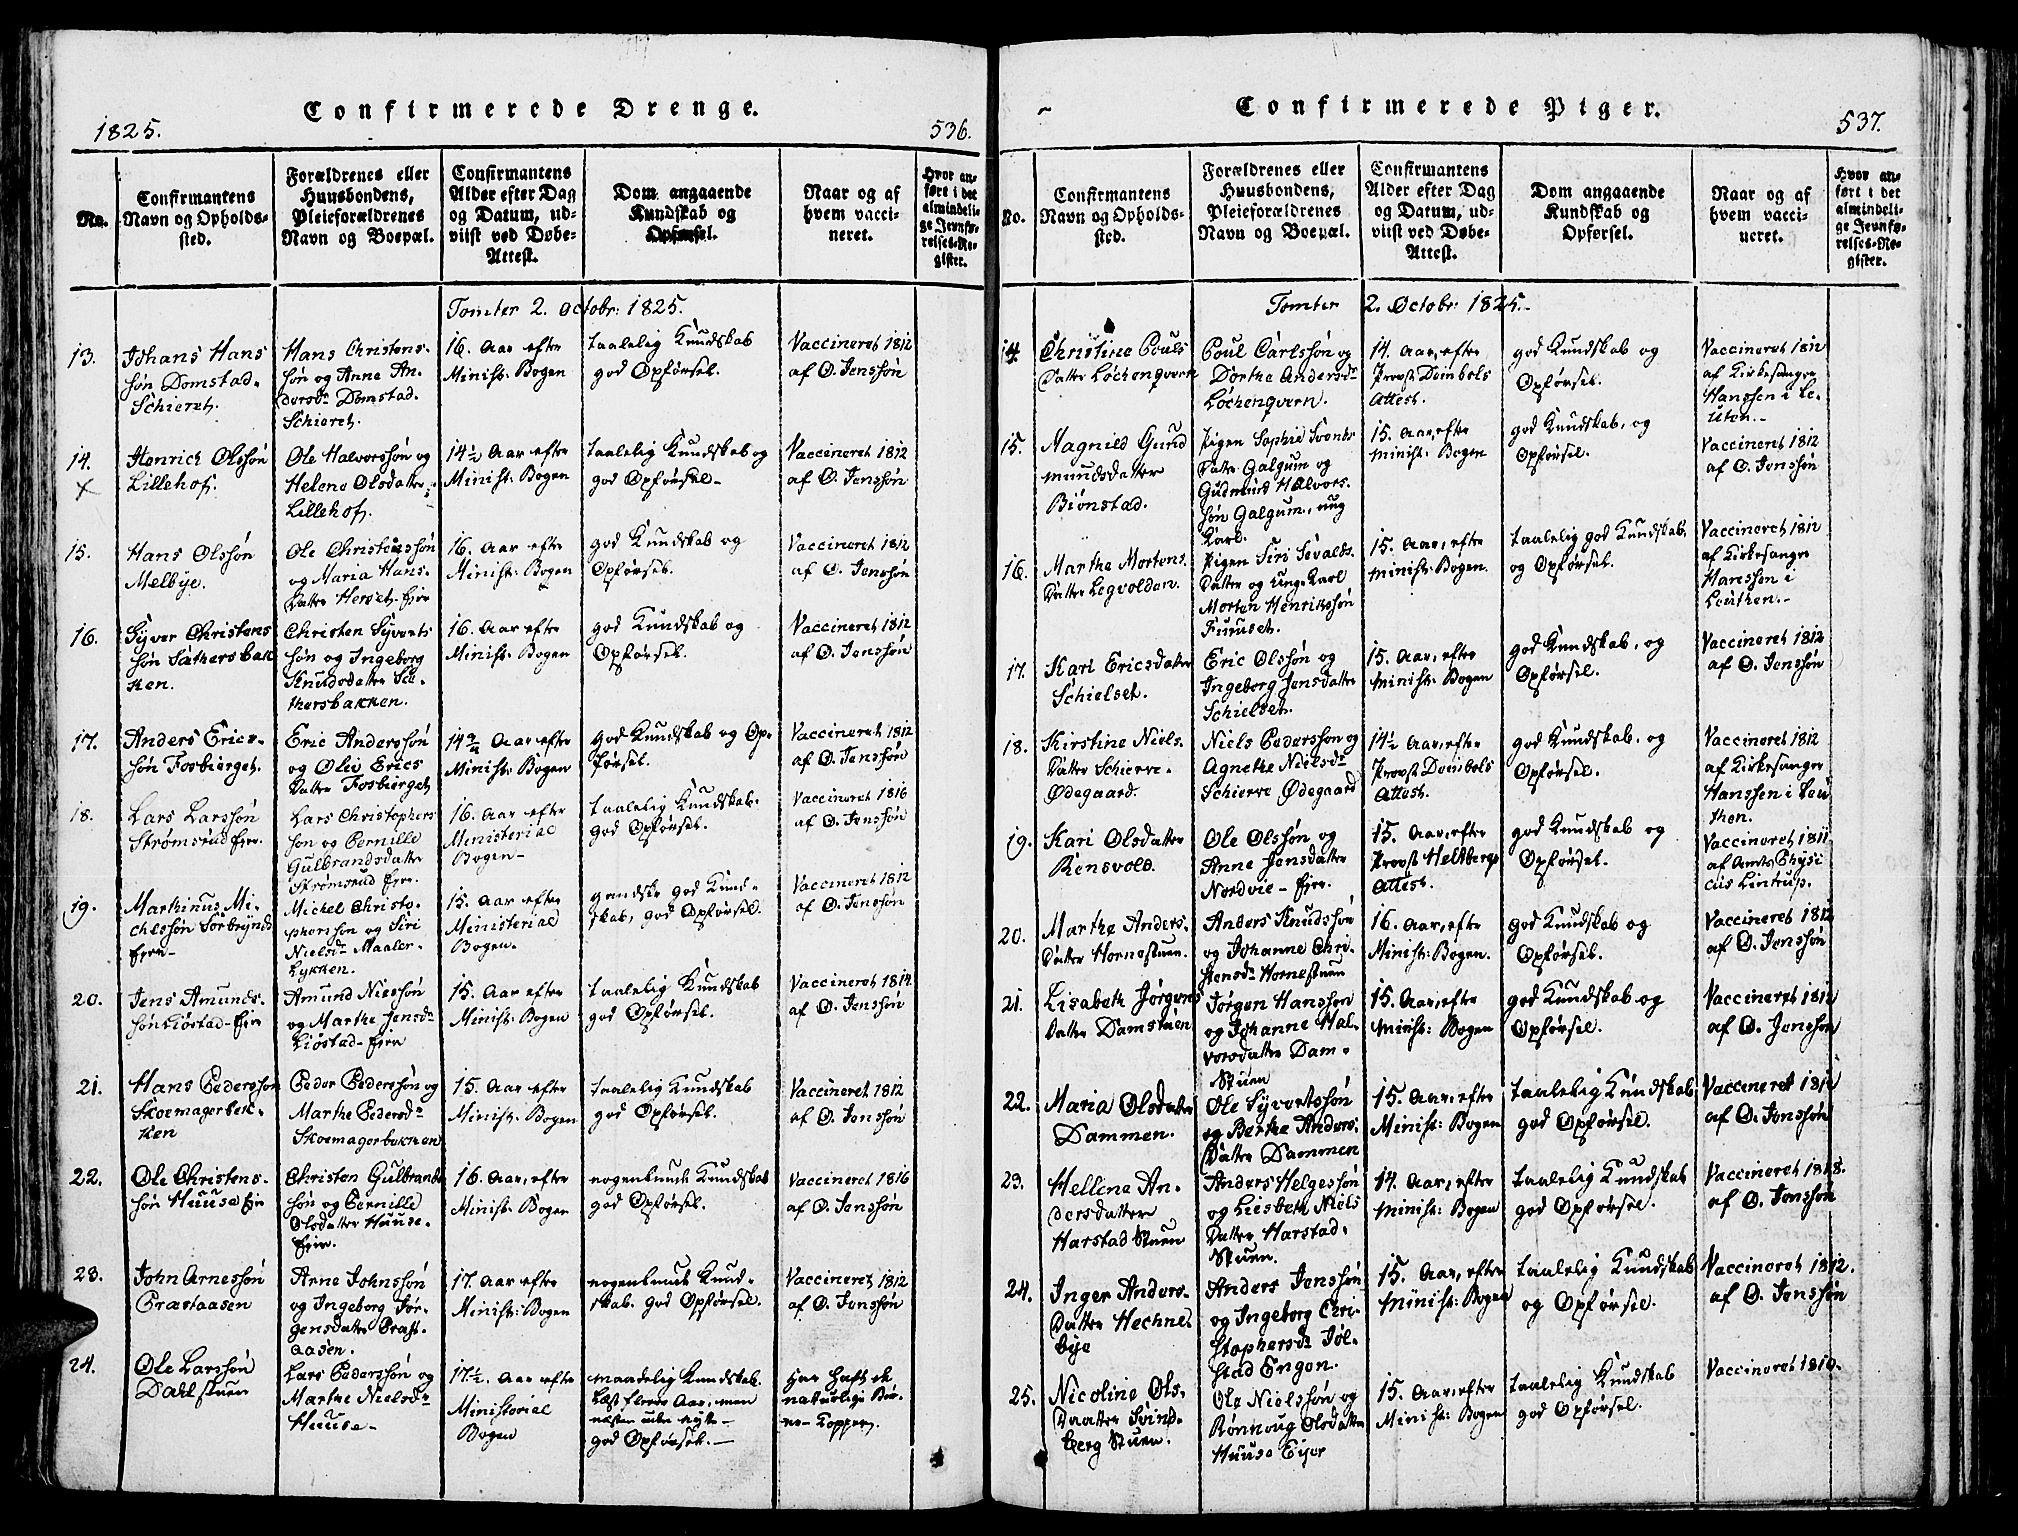 Confirmerede Drenge.
1825.
536.
No.
Confirmantens
Navn og Opholds-
sted.
Forældrenes eller
Huusbondens,
Pleieforældrenes
Navn og Boepæl.
Confirmantens
Alder efter Dag
og Datum, ud-
viist ved Døbe-
Attest.
Dom angaaende
Kundskab og
Opførsel.
Naar og af
hvem vacci-
neret.
Hvor an-
ført i det
almindeli-
ge Jevnfø-
relses-Re-
gister.
Tomter 2. Octobr: 1825.
13.
Johans Hans
søn Domstad-
Schieret.
Hans Christens-
søn og Anne An-
dersdr Domstad-
Schieret.
16. Aar efter
Minist: Bogen
taalelig Kundskab
god Opførsel.
Vaccineret 1812
af O. Jenssøn
14.
Henrich Olssøn
Lillehof.
Ole Halvorssøn og
Helene Olsdatter
Lillehof.
14½ Aar efter
Minist: Bogen
taalelig Kundskab og
god Opførsel-
Vaccineret 1812
af O. Jenssøn
15.
Hans Olssøn
Melbye.
Ole Christenssøn
og Maria Hans-
datter Herset-Eier
16. Aar efter
Minist: Bogen
god Kundskab og
Opførsel.
Vaccineret 1812
af O. Jenssøn
16.
Syver Christens
søn Sæthersbak
ken.
Christen Syverts
søn og Ingeborg
Knudsdatter Sæ-
thersbakken.
16. Aar efter
Minist: Bogen
god Kundskab og
Opførsel.
Vaccineret 1812
af O. Jenssøn
17.
Anders Erics-
søn Fosbierget.
Eric Anderssøn
og Olei Erics
datter Fosbierget
14¾ Aar efter
Minist: Bogen
god Kundskab og Op-
førsel.
Vaccineret 1812
af O. Jenssøn
18.
Lars Larssøn
Strømsrud Eier.
Lars Christophers
søn og Pernille
Gulbrandsdatter
Strømsrud Eier.
16. Aar efter
Ministerial
Bogen-
taalelig Kundskab-
god Opførsel.
Vaccineret 1816
af O. Jenssøn
19.
Marthinus Mi-
chelssøn
Eier-
Michel Christo-
pherssøn og Siri
Nielsdr Maaler-
Lykken.
15. Aar efter
Ministerial
Bogen.
gandske god Kund-
skab, god Opførsel.
Vaccineret 1812
af O. Jenssøn
20.
Jens Amunds-
søn Liøstad-Eier
Amund Nielssøn
og Marthe Jensdr
Liøstad-Eier
15. Aar efter
Minist: Bogen
taalelig Kundskab
god Opførsel.
Vaccineret 1814
af O. Jenssøn
21.
Hans Pederssøn
Skoemagerbek-
ken
Peder Pederssøn og
Marthe Pedersdr
Skoemagerbakken
15. Aar efter
Minist: Bogen
taalelig Kundskab
god Opførsel.
Vaccineret 1812
af O. Jenssøn
22.
Ole Christens-
søn Huuse Eier
Christen Gulbrands
søn og Pernille
Olsdatter Huuse-
Eier.
16. Aar, efter
Minist: Bogen
nogenlunde Kundskab
god Opførsel.
Vaccineret 1816
af O. Jenssøn
23.
John Arnessøn
Præstaasen
Arne Johnssøn
og Ingeborg Jør-
gensdatter Præst-
aasen.
17. Aar efter
Minist: Bogen
nogenlunde Kund-
skab. god Opførsel.
Vaccineret 1812
af O. Jenssøn
24.
Ole Larssøn
Dahlstuen
Lars Pederssøn og
Marthe Nielsdr
Huuse-
17½. Aar efter
Ministerial
Bogen
maadelig Kundskab.
Læst flere Aar, men
næsten uden nytte-
god Opførsel.-
Har haft de
naturlige Bør-
ne-Kopper,
Confirmerede Piger.
537.
No.
Confirmantens
Navn og Opholds-
sted.
Forældrenes eller
Huusbondens,
Pleieforældrenes
Navn og Boepæl.
Confirmantens
Alder efter Dag
og Datum, ud-
viist ved Døbe-
Attest.
Dom angaaende
Kundskab og
Opførsel.
Naar og af
hvem vacci-
neret.
Hvor an-
ført i det
almindeli-
ge Jevnfø-
relses-Re-
gister.
Tomter 2. Octobr: 1825.-
14.
Christine Pouls
datter Løchenqvern
Poul Carlssøn og
Dorthe Andersdr
Løchenqvern.
14. Aar, efter
Provst Dømbols
Attest.
god Kundskab og
Opførsel.
Vaccineret 1812
af Kirkesanger
Hanssen i Le-
uten.-
15.
Magnild Gund
mundsdatter
Biønstad.
Pigen Sophie Svents
datter Galgum og
Gudmund Halvors-
søn Galgum, ung
Karl.
15. Aar, efter
minist: Bogen
god Kundskab, og
Opførsel.
Vaccineret 1812
af O. Jenssøn
16.
Marthe Mortens
datter Legvolden.
Pigen Siri Sevalds
datter og ung Karl
Morten Henrikssøn
Furuset.
15. Aar, efter
minist: Bogen.
taalelig god Kundskab,
og Opførsel.
Vaccineret 1812
af Kirkesanger
Hanssøn i
Leuthen.-
17.
Kari Ericsdatter
Schielset.
Eric Olssøn og
Ingeborg Jensdatter
Schielset.
15. Aar, efter
minist: Bogen
god Kundskab, og
Opførsel.
Vaccineret 1812
af O. Jenssøn
18.
Kirstine Niels-
datter Schierve-
Ødegaard.
Niels Pederssøn og
Agnethe Nielsdr
Schierve Ødegaard
14½ Aar, efter
Provst Dømbols
Attest.
god Kundskab, og
Opførsel.
Vaccineret 1812
af Kirkesanger
Hanssen i Leu
then.
19.
Kari Olsdatter
Rensvold.
Ole Olssøn og
Anne Jensdatter
Nordvie-Eier.
15. Aar, efter
Provst Heltbergs
Attest.
god Kundskab og
Opførsel.
Vaccineret 1811
af Amts Physi
cus Lintrup.
20.
Marthe Anders-
datter Hornestuen.
Anders Knudssøn
og Johanne Chri-
stensdr Hornestuen
16. Aar, efter
Minist: Bogen.
god Kundskab og
Opførsel.
Vaccineret 1812
af O. Jenssøn
21.
Lisabeth Jørgens
datter Damstuen
Jørgen Hanssøn
og Johanne Hal-
vorsdatter Dam-
Stuen
15. Aar, efter
Minist: Bogen
god Kundskab og
Opførsel.
Vaccineret 1812
af O. Jenssøn
22.
Maria Olsdatter
Dammen.
Ole Syvertssøn
og Berthe Anders-
datter Dammen
15. Aar, efter
Minist: Bogen
taalelig Kundskab
god Opførsel.
Vaccineret 1812
af O. Jenssøn
23.
Hellene An-
dersdatter
Harstad Stuen
Anders Helgessøn
og Liesbeth Niels
datter Harstad-
Stuen.
14. Aar, efter
minist: Bogen
taalelig Kundskab
god Opførsel.
Vaccineret 1818.
af O. Jenssøn
24.
Inger Anders-
datter Hechnes
bye
Anders Jenssøn
og Ingeborg Chri-
stophersdr Jøl-
stad Engen.
15. Aar, efter
Minist: Bogen
taalelig Kundskab
og Opførsel.
Vaccineret 1812.
af O. Jenssøn
25.
Nicoline Ols-
daatter Svind-
berg Stuen.
Ole Nielssøn og
Rønnoug Olsdatter
Huuse Eijer
15. Aar, efter
Minist: Bogen
taalelig Kundskab
god Opførsel.
Vaccineret 1810.